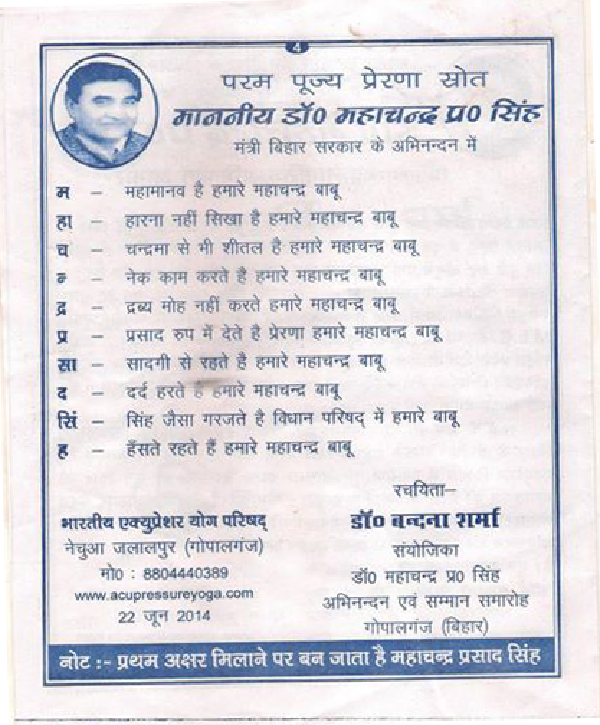 4
परम पूज्य प्रेरणा स्रोत
माननीय डॉ0 महाचन्द्र प्र0 सिंह
मंत्री बिहार सरकार के अभिनन्दन में
म – महामानव है हमारे महाचन्द्र बाबू
हा – हारना नहीं सिखा है हमारे महाचन्द्र बाबू
च – चन्द्रमा से भी शीतल है हमारे महाचन्द्र बाबू
न् – नेक काम करते है हमारे महाचन्द्र बाबू
द्र – द्रब्य मोह नहीं करते हमारे महाचन्द्र बाबू
प्र – प्रसाद रुप में देते है प्रेरणा हमारे महाचन्द्र बाबू
सा – सादगी से रहते है हमारे महाचन्द्र बाबू
द – दर्द हरते है हमारे महाचन्द्र बाबू
सिं – सिंह जैसा गरजते है विधान परिषद् में हमारे बाबू
ह – हँसते रहते हैं हमारे महाचन्द्र बाबू
रचयिता–
डॉ0 बन्दना शर्मा
संयोजिका
डॉ0 महाचन्द्र प्र0 सिंह
अभिनन्दन एवं सम्मान समारोह
गोपालगंज (बिहार)
भारतीय एक्युप्रेशर योग परिषद्
नेचुआ जलालपुर (गोपालगंज)
मो0 : 8804440389
www.acupressureyoga.com
22 जून 2014
नोट :- प्रथम अक्षर मिलाने पर बन जाता है महाचन्द्र प्रसाद सिंह